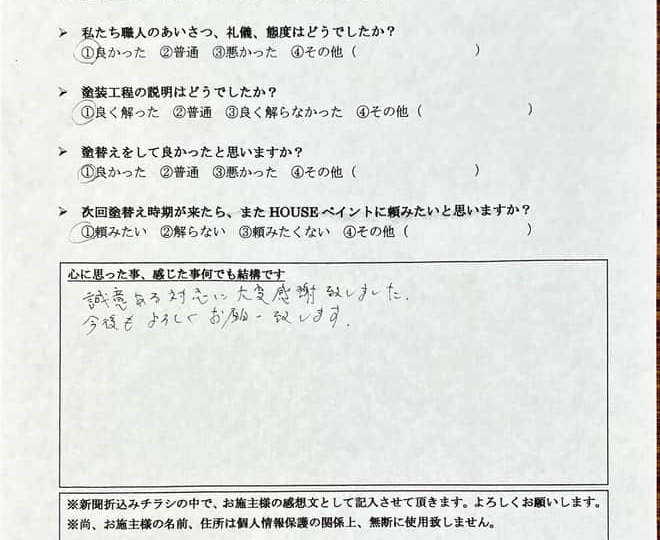 ➤ 私たち職人のあいさつ、礼儀、態度はどうでしたか？
①良かった ②普通 ③悪かった ④その他（ ）
➤ 塗装工程の説明はどうでしたか？
①良く解った ②普通 ③良く解らなかった ④その他（ ）
➤ 塗替えをして良かったと思いますか？
①良かった ②普通 ③悪かった ④その他（ ）
➤ 次回塗替え時期が来たら、また HOUSE ペイントに頼みたいと思いますか？
①頼みたい ②解らない ③頼みたくない ④その他（ ）
心に思った事、感じた事何でも結構です
誠意ある対応に大変感謝致しました.
今後もよろしくお願い致します.
※新聞折込みチラシの中で、お施主様の感想文として記入させて頂きます。よろしくお願いします。
※尚、お施主様の名前、住所は個人情報保護の関係上、無断に使用致しません。